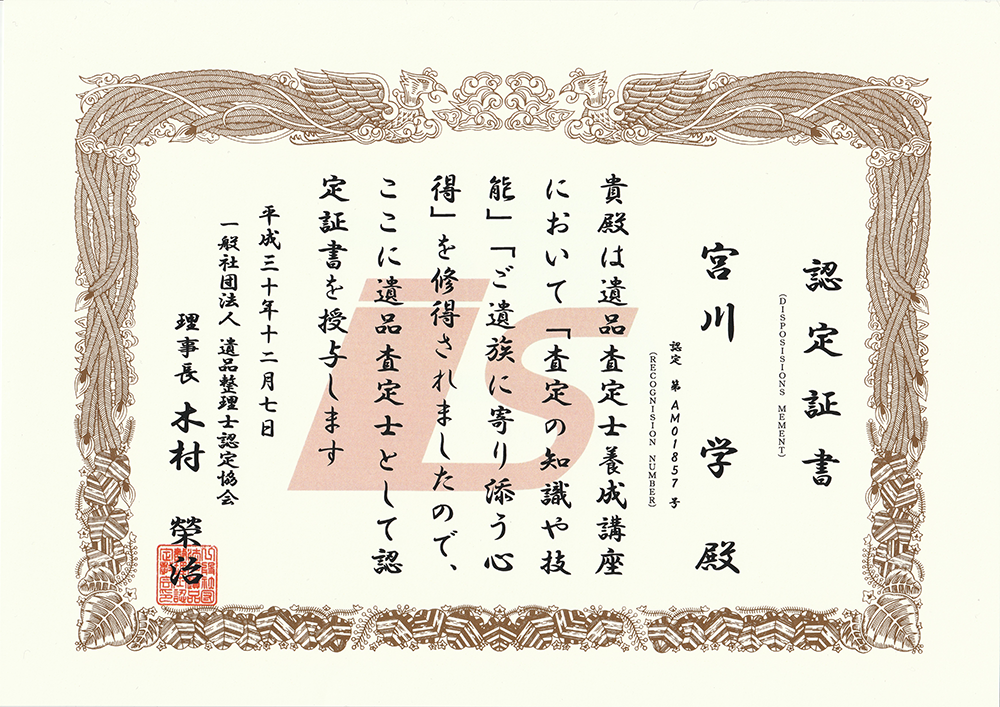 認定証書
(DISPOSISIONS MEMENT)
宮川 学 殿
認定 第 AM01857 号
(RECOGNISION NUMBER)
貴殿は遺品査定士養成講座
において「査定の知識や技
能」「ご遺族に寄り添う心
得」を修得されましたので、
ここに遺品査定士として認
定証書を授与します
平成三十年十二月七日
一般社団法人 遺品整理士認定協会
理事長 木村 榮治
is